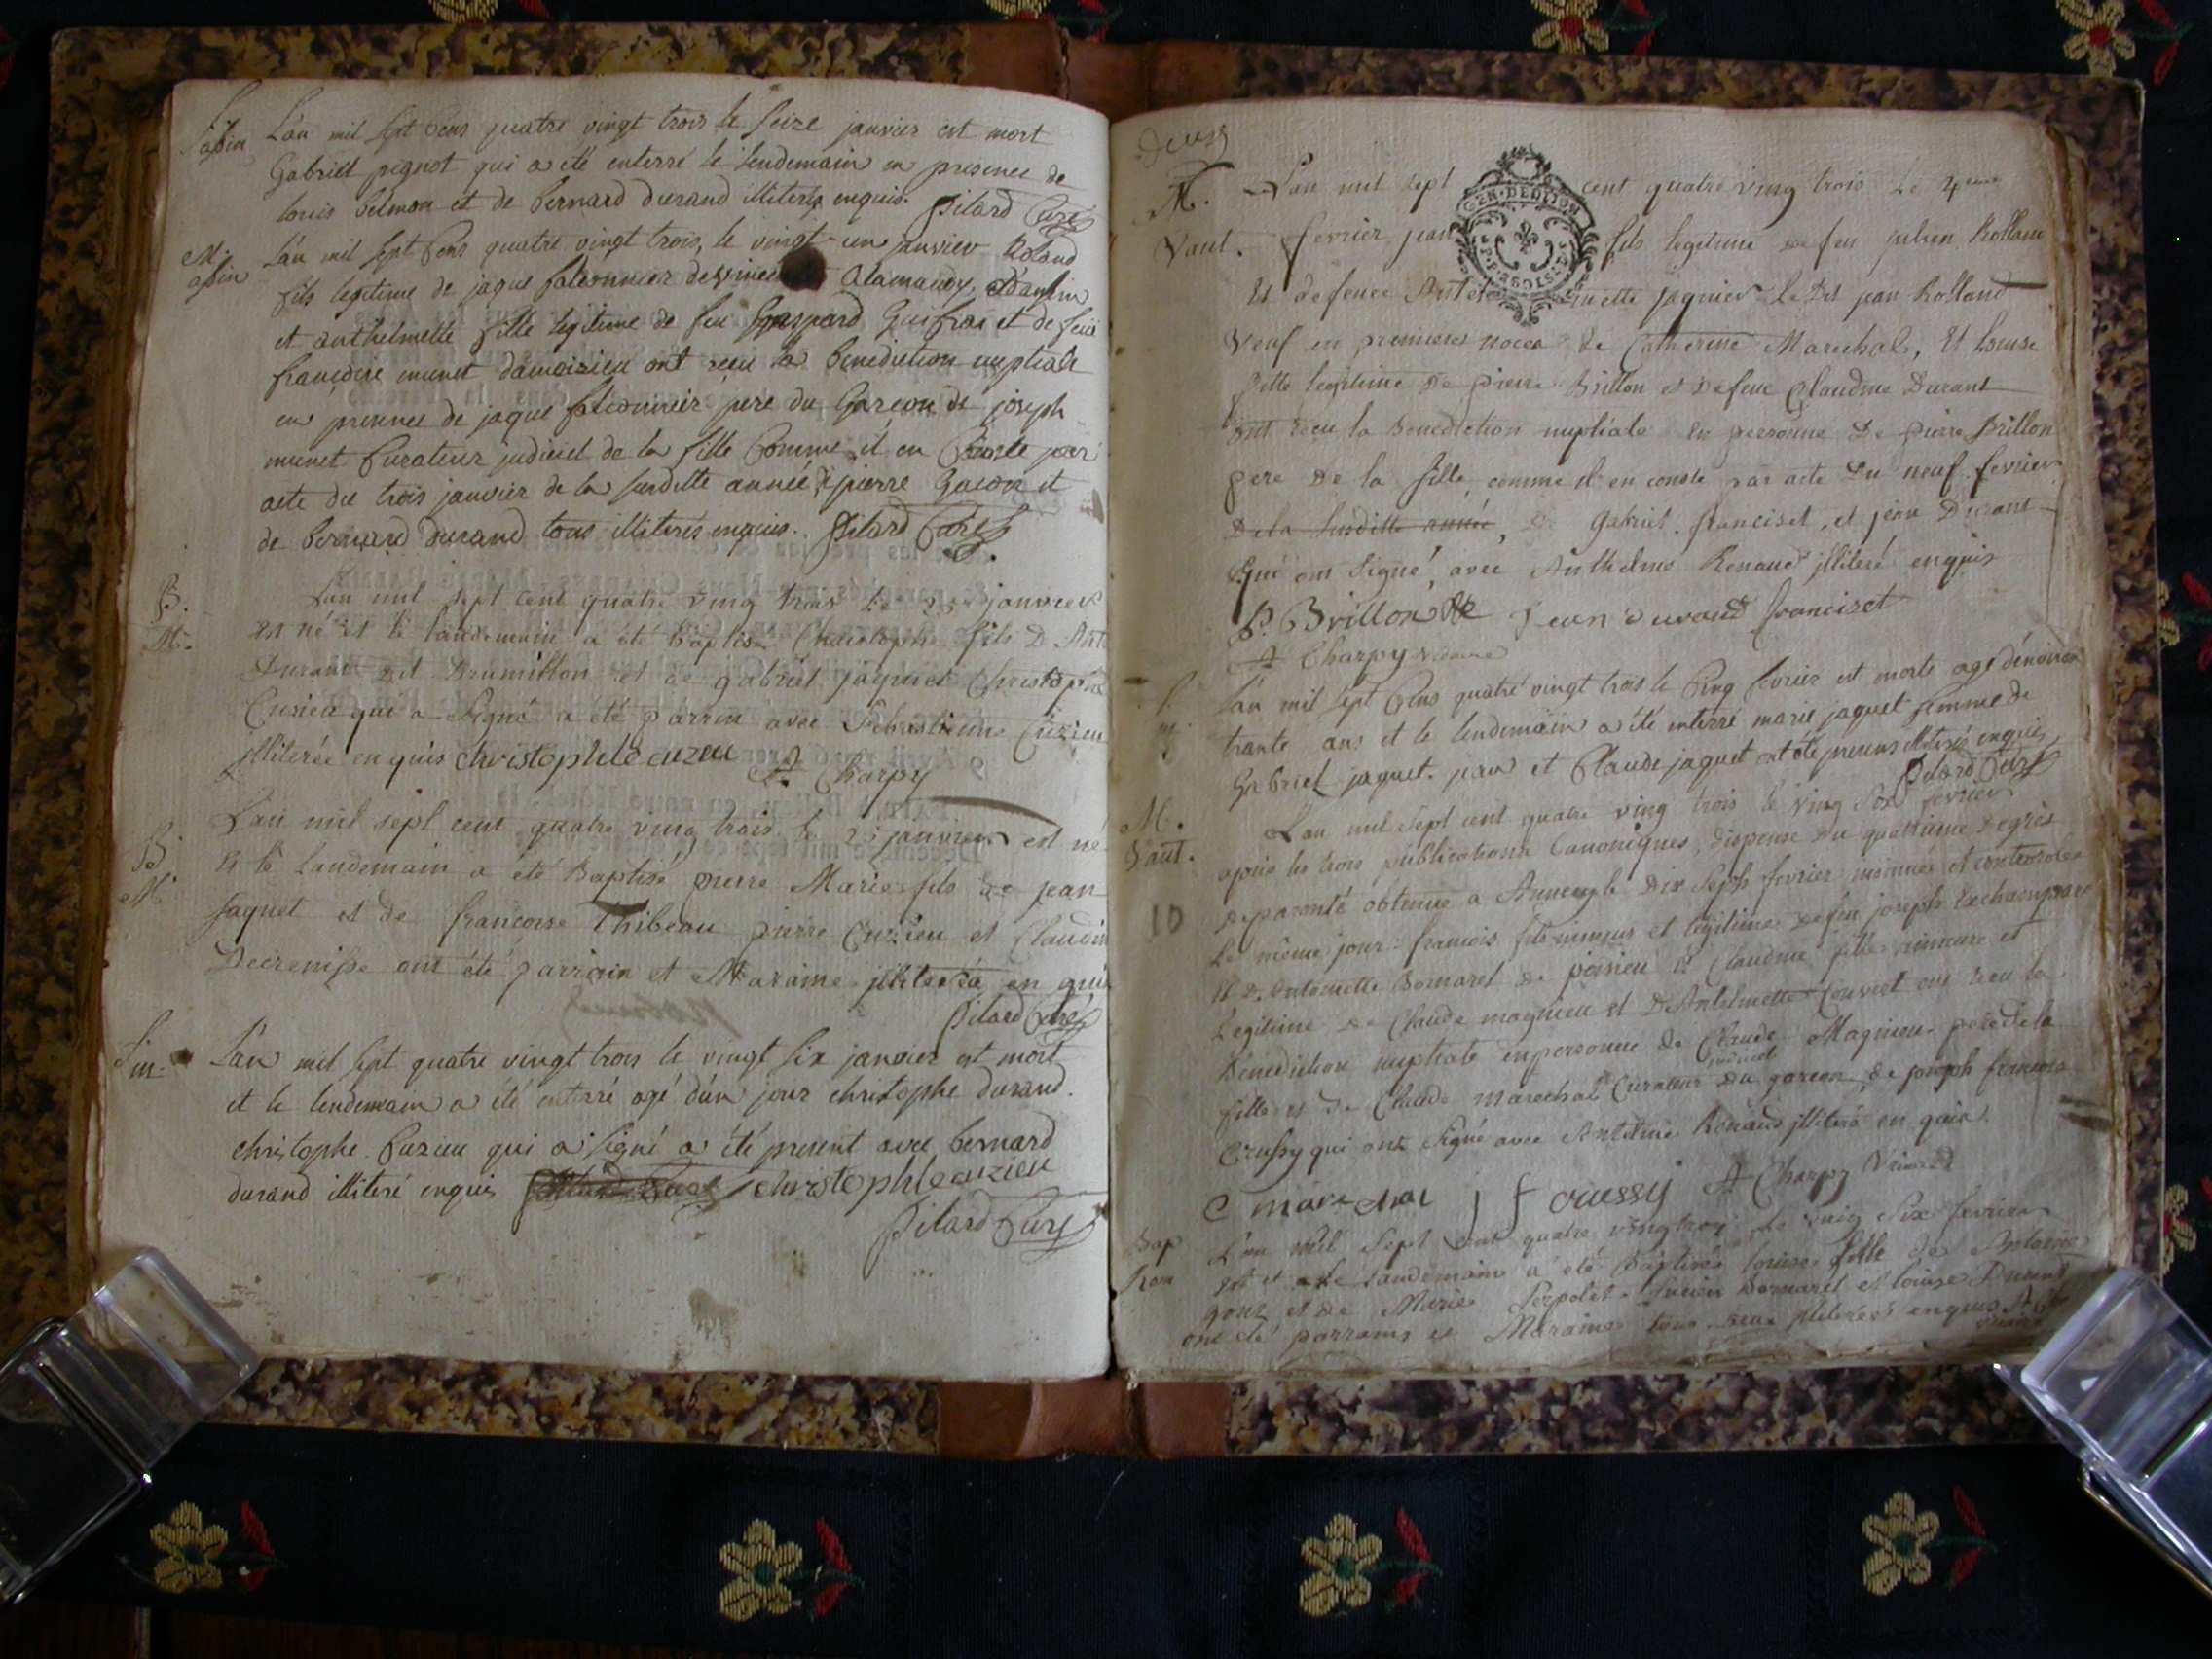 L'an mil sept Cens quatre vingt trois le seize janvier est mort
Gabriel pignot qui a été enterré le lendemain en presence de
louis belmon et de bernard durand illiterés enquis. Pilard Curé
L'an mil sept Cens quatre vingt trois, le vingt un janvier Roland
fils legitime de jaque falconnier de
et anthelmette fille legitime de feu Gaspard et de feüe
françoise munet damoisieu ont reçu la benediction nuptiale
en presence de jaque falconnier pere du Garçon de joseph
munet Curateur judiciel de la fille Comme il en Conste par
acte du trois janvier de la susditte année, de pierre Gacon et
de bernard durand tous illiterés enquis. Pilard Curé
B.
M.
L'an mil sept cent quatre ving trois le janvier
est né et le landemain a été baptisé Christophe fils D. Ant
Durand dit Brumillon et de gabriel jaquet Christophe
Cusieu qui a signé a été parrin avec Sebastienne Cuzieu
illiterée enquis christophle cuzieu
A Charpy
B.
M.
L'an mil sept cent quatre ving trois le janvier est né
et le landemain a été Baptisé pierre Marie fils de jean
jaquet et de francoise Thibeau pierre Cuzieu et Claudin
Decrenisse ont été parrain et Maraine illiterés en quis
Pilard Curé
L'an mil sept quatre vingt trois le vingt six janvier est mort
et le lendemain a été enterré agé d'un jour christophe durand.
christophe Cuzieu qui a signé a été present avec bernard
durand illiteré enquis christophle cuzieu
Pilard Curé
M.
Vaut.
L'an mil sept cent quatre ving trois le
GEN. DE DIJON
fevrier jean fils legitime de feu julien Rolland
Et defeüe jagnier le Dit jean Rolland
Veuf en premieres noces de Catherine Marechal, Et Louise
fille legitime de pierre Brillon et defeue Claudine Durant
ont reçu la Benediction nuptiale en personne De pierre Brillon
pere de la fille, comme il en conste par acte Du neuf fevrier
De la susditte année, De Gabriel franciset, et jean Durant
qui ont signé, avec Anthelme Renaud illiteré enquis
P. Brillon Jean durand franciset
A Charpy vicaire
L'an mil sept Cens quatre vingt trois le Cinq fevrier est morte agé d'environ
trante ans et le lendemain a été enterré marie jaquet femme de
Gabriel jaquet. jean et Claude jaquet ont été presens illiterés enquis
Pilard Curé
M.
Vaut.
10
L'an mil sept cent quatre ving trois le ving Six fevrier
apres les trois publications Canoniques, dispense du quatrieme Degrés
de parenté obtenue a Annecy le Dix Sept fevrier insinuée et controlée
Le même jour: francois fils mineur et legitime de feu joseph
et D. Antoinette Bornarel de peisieu et Claudine fille mineure et
Legitime de Claude magnieu et D. Antelmette Couvert ont reçu la
Benediction nuptiale en personne de Claude Magnieu pere de la
fille et de Claude marechal Curateur du garcon, de joseph francois
Crussy qui ont signé avec Antelme Renaud illiteré en quis.
C marechal j f crussy A Charpy Vicaire
Bap
L'an Mil Sept cent quatre vingtrois le ving Six fevrier
est et le landemain a été Baptisée louise fille de Antoine
gout et de Marie Serpolet. Lucien Bornarel et louise Durand
ont été parrains et Maraine tous deux illiterés enquis